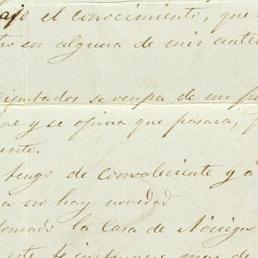 ajo el conocimiento, que
tro en alguna de mis anter
Diputados se ocupa de un pr
se y se opina que pasara, p
ento.
tengo de convaleciente y a
a no hay novedad
tomado la Casa de Noriega